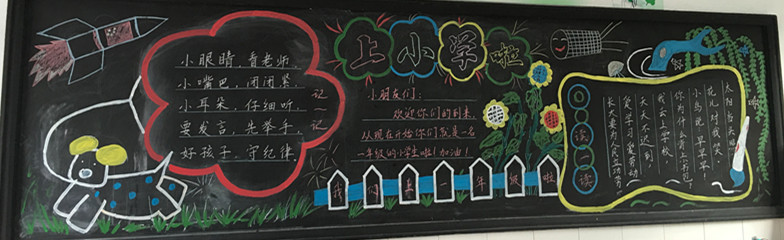 小眼睛,看老师,
小嘴巴,闭闭紧,
小耳朵,仔细听,
要发言,先举手,
好孩子,守纪律。
记一记
上小学啦
小朋友们:
欢迎你们的到来,
从现在开始你们就是一名
一年级的小学生啦!加油!
我们是一年级啦
读一读
太阳当
花儿对我笑,
小鸟说早早早,
你为什么背上小书包?
我去上学校,
天天不迟到,
爱学习爱劳动,
长大要为人民立功劳。